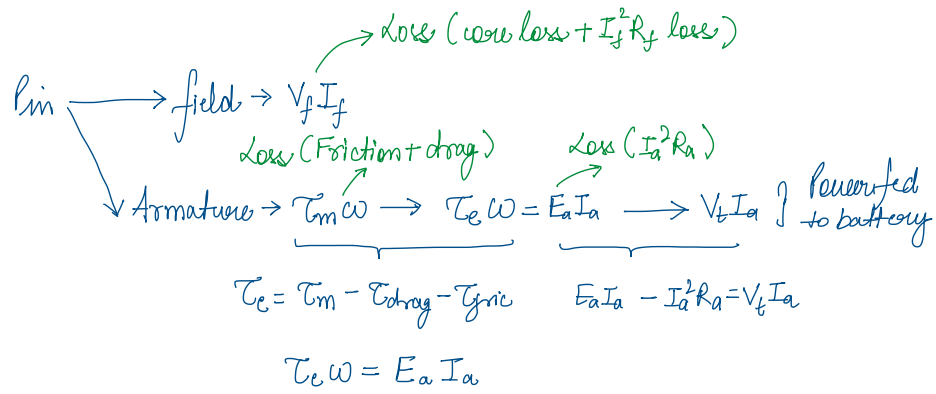 Loss (core loss + I_f²R_f loss)
Pin → field → V_f I_f
Loss (Friction + drag) Loss (I_a²R_a)
Armature → τ_m ω → τ_e ω = E_a I_a → V_t I_a } Power fed
to battery
τ_e = τ_m − τ_drag − τ_fric E_a I_a − I_a²R_a = V_t I_a
τ_e ω = E_a I_a